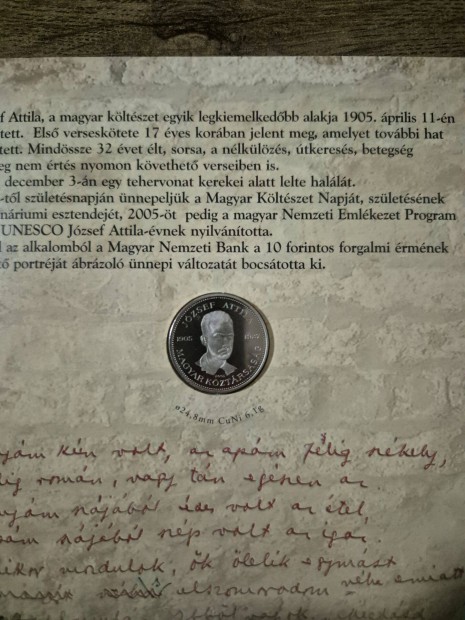 f Attila, a magyar költészet egyik legkiemelkedőbb alakja 1905. április 11-én
tett. Első verseskötete 17 éves korában jelent meg, amelyet további hat
tett. Mindössze 32 évet élt, sorsa, a nélkülözés, útkeresés, betegség
eg nem értés nyomon követhető verseiben is.
december 3-án egy tehervonat kerekei alatt lelte halálát.
-től születésnapján ünnepeljük a Magyar Költészet Napját, születésének
náriumi esztendejét, 2005-öt pedig a magyar Nemzeti Emlékezet Program
UNESCO József Attila-évnek nyilvánította.
l az alkalomból a Magyar Nemzeti Bank a 10 forintos forgalmi érmének
tő portréját ábrázoló ünnepi változatát bocsátotta ki.
JÓZSEF ATTILA
1905
MAGYAR KÖZTÁRSASÁG
ø24,8mm CuNi 6,1g
nyám kún volt, az apám félig székely,
lig román, vagy tán egészen az.
nyám szájából édes volt az étel
pám szájából szép volt az igaz.
ikor mozdulok, ők ölelik egymást
elszomorodom néha emiatt